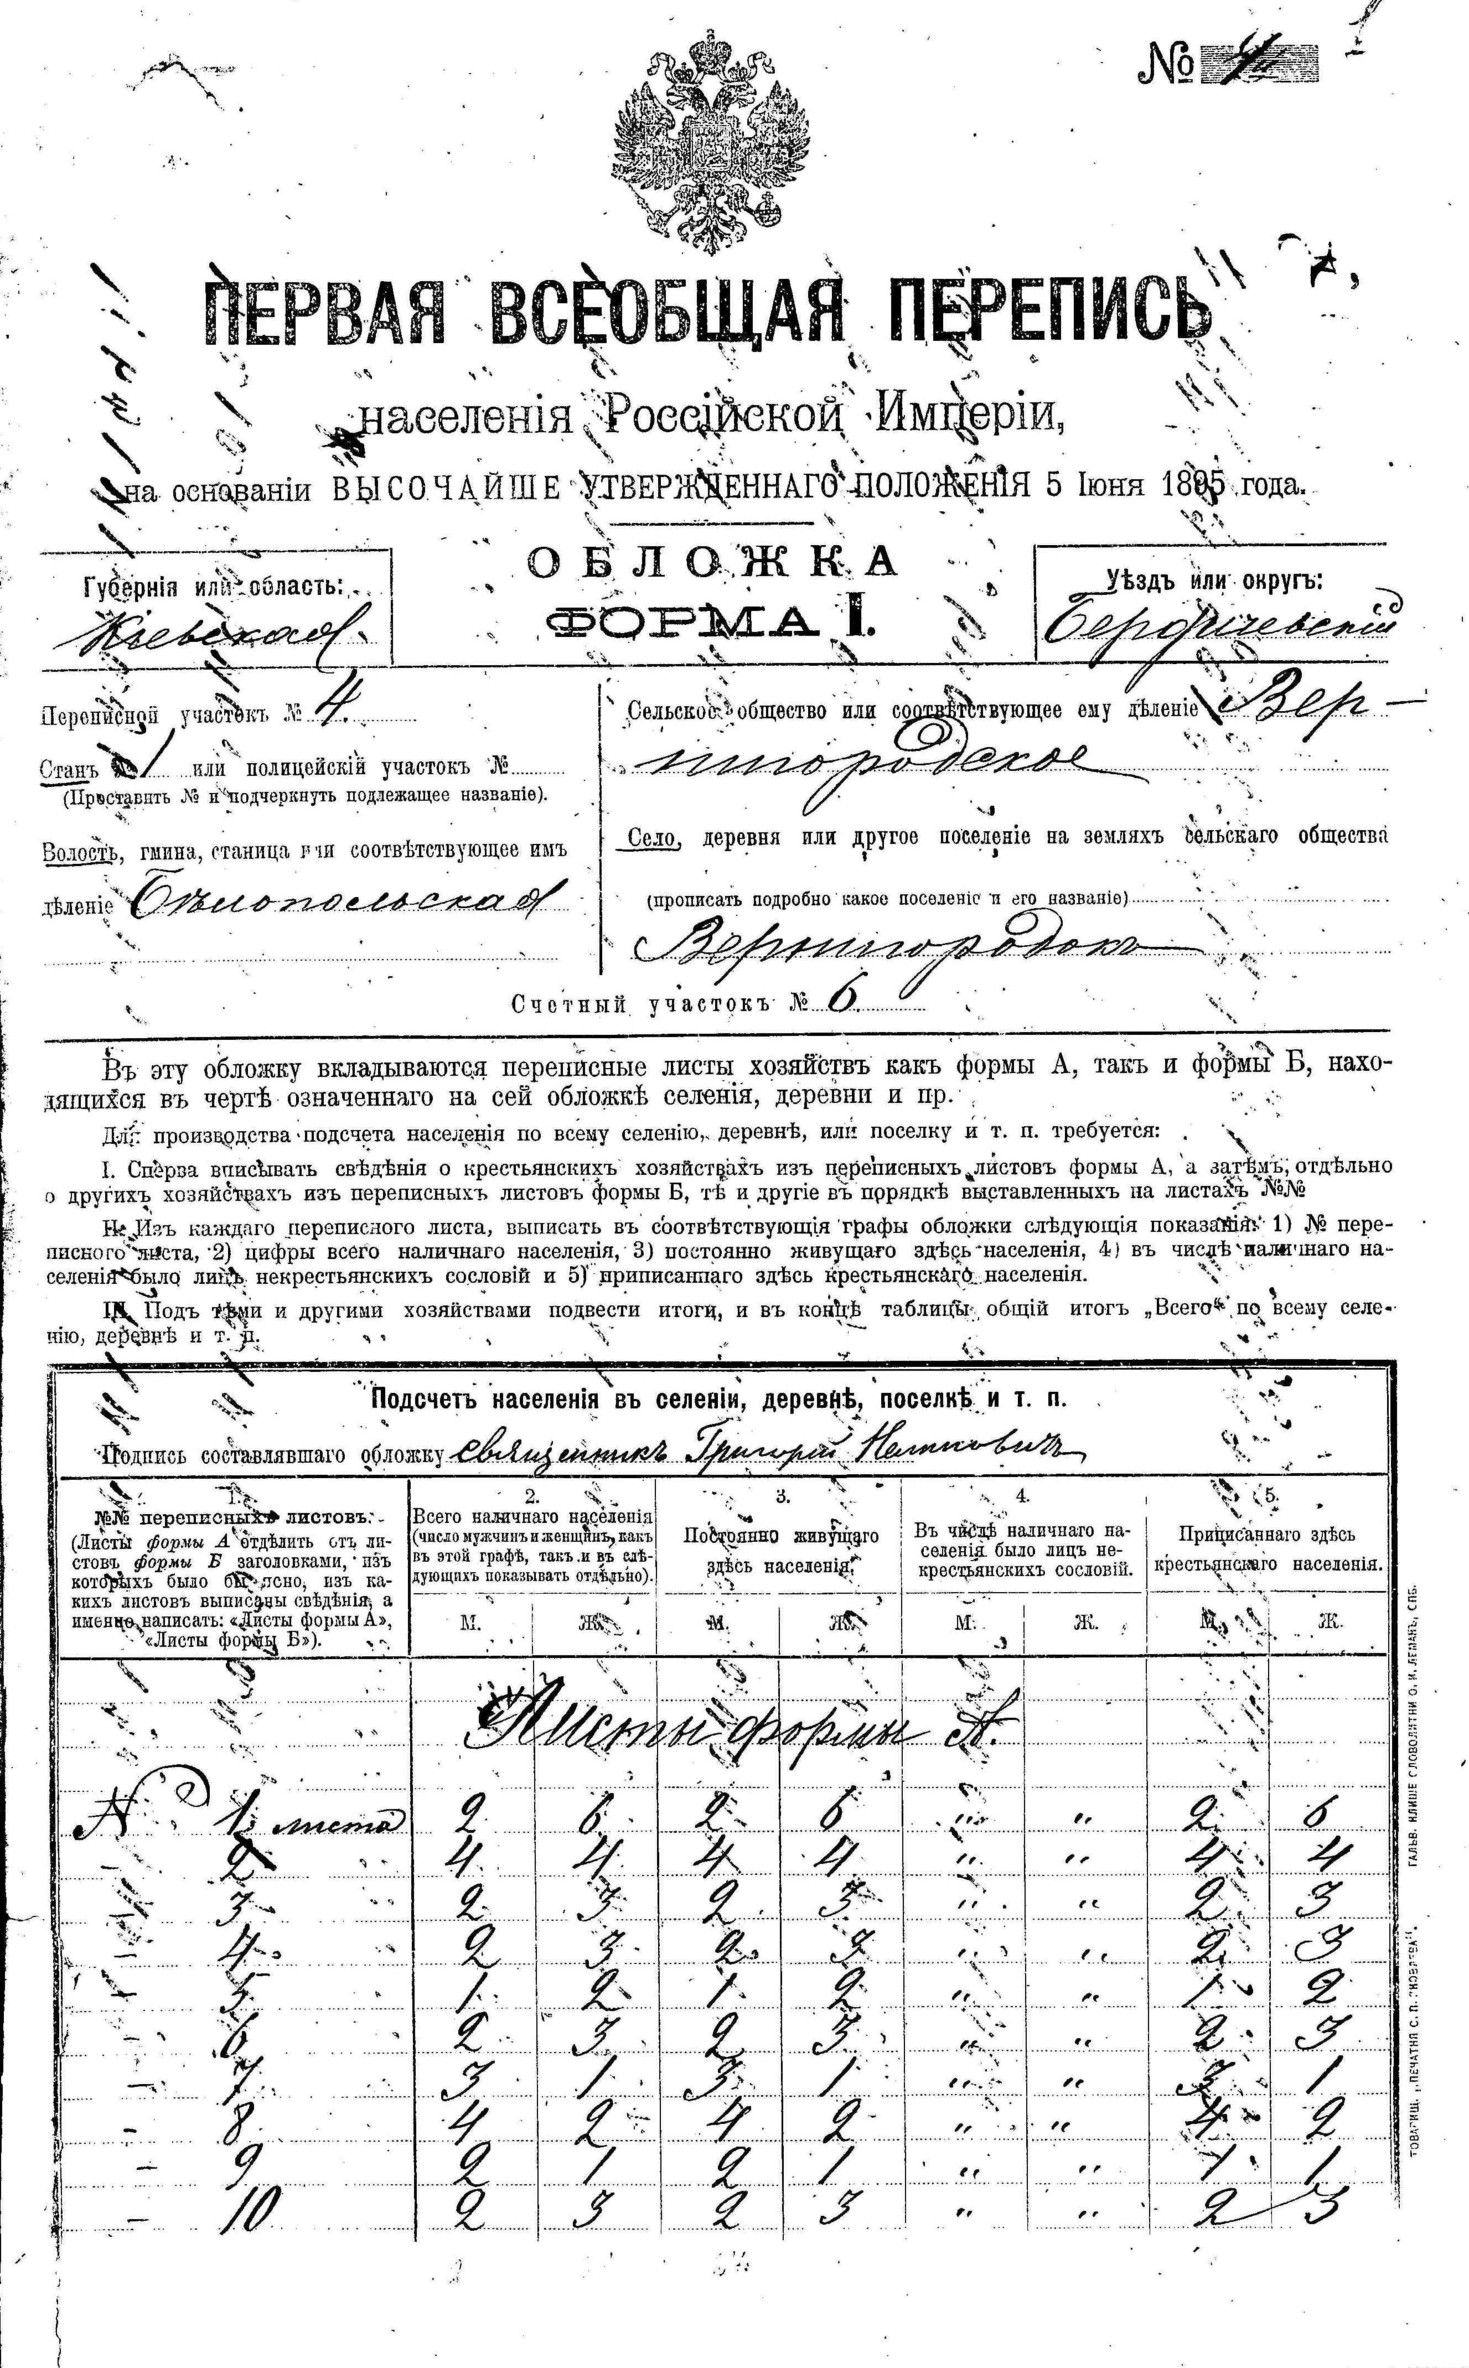 № 4
ПЕРВАЯ ВСЕОБЩАЯ ПЕРЕПИСЬ
населенія Россійской Имперіи,
на основаніи ВЫСОЧАЙШЕ УТВЕРЖДЕННАГО ПОЛОЖЕНІЯ 5 Іюня 1895 года.
ОБЛОЖКА
ФОРМА I.
Губернія или область:
Кіевская
Уѣздъ или округъ:
Бердичевскій
Переписной участокъ № 4.
Станъ № 1 или полицейскій участокъ №
(Проставить № и подчеркнуть подлежащее названіе).
Волость, гмина, станица или соотвѣтствующее имъ
дѣленіе Бѣлопольская
Сельское общество или соотвѣтствующее ему дѣленіе Вер-
шгородское
Село, деревня или другое поселеніе на земляхъ сельскаго общества
(прописать подробно какое поселеніе и его названіе)
Вершгородокъ
Счетный участокъ № 6.
Въ эту обложку вкладываются переписные листы хозяйствъ какъ формы А, такъ и формы Б, нахо-
дящихся въ чертѣ означеннаго на сей обложкѣ селенія, деревни и пр.
Для производства подсчета населенія по всему селенію, деревнѣ, или поселку и т. п. требуется:
I. Сперва вписывать свѣдѣнія о крестьянскихъ хозяйствахъ изъ переписныхъ листовъ формы А, а затѣмъ, отдѣльно
о другихъ хозяйствахъ изъ переписныхъ листовъ формы Б, тѣ и другіе въ порядкѣ выставленныхъ на листахъ №№
II. Изъ каждаго переписного листа, выписать въ соотвѣтствующія графы обложки слѣдующія показанія: 1) № пере-
писного листа, 2) цифры всего наличнаго населенія, 3) постоянно живущаго здѣсь населенія, 4) въ числѣ наличнаго на-
селенія было лицъ некрестьянскихъ сословій и 5) приписаннаго здѣсь крестьянскаго населенія.
III. Подъ тѣми и другими хозяйствами подвести итоги, и въ концѣ таблицы общій итогъ „Всего“ по всему селе-
нію, деревнѣ и т. п.
Подсчетъ населенія въ селеніи, деревнѣ, поселкѣ и т. п.
Подпись составлявшаго обложку священникъ Григорій
1.
№№ переписныхъ листовъ.
(Листы формы А отдѣлить отъ ли-
стовъ формы Б заголовками, изъ
которыхъ было бы ясно, изъ ка-
кихъ листовъ выписаны свѣдѣнія, а
именно написать: «Листы формы А»,
«Листы формы Б»).
2.
Всего наличнаго населенія
(число мужчинъ и женщинъ, какъ
въ этой графѣ, такъ и въ слѣ-
дующихъ показывать отдѣльно).
3.
Постоянно живущаго
здѣсь населенія.
4.
Въ числѣ наличнаго на-
селенія было лицъ не-
крестьянскихъ сословій.
5.
Приписаннаго здѣсь
крестьянскаго населенія.
М. Ж. М. Ж. М. Ж. М. Ж.
Листы формы А.
№ 1 листа 2 6 2 6 " " 2 6
- 2 " 4 4 4 4 " " 4 4
- 3 " 2 3 2 3 " " 2 3
- 4 " 2 3 2 3 " " 2 3
- 5 1 2 1 2 " " 1 2
- 6 2 3 2 3 " " 2 3
- 7 3 1 3 1 " " 3 1
- 8 4 2 4 2 " " 4 2
- 9 2 1 2 1 " " 1 1
- 10 2 3 2 3 " " 2 3
ГАЛЬВ. КЛИШЕ СЛОВОЛИТНИ О. И. ЛЕМАНЪ, СПБ.
ТОВАРИЩ. „ПЕЧАТНЯ С. П. ЯКОВЛЕВА“.